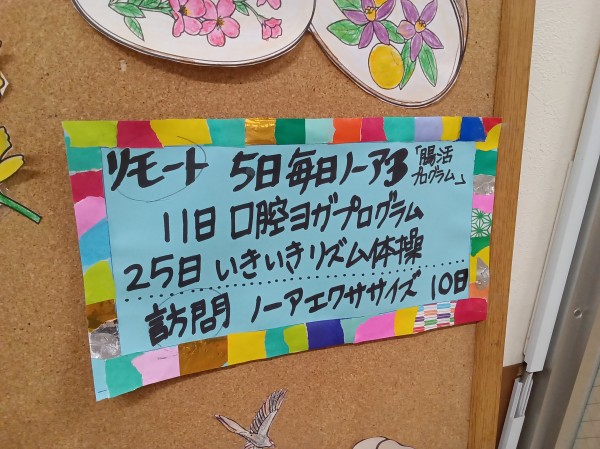 リモート 5日毎日ノーア3「腸活プログラム」
11日 口腔ヨガプログラム
25日 いきいきリズム体操
訪問 ノーアエクササイズ 10日